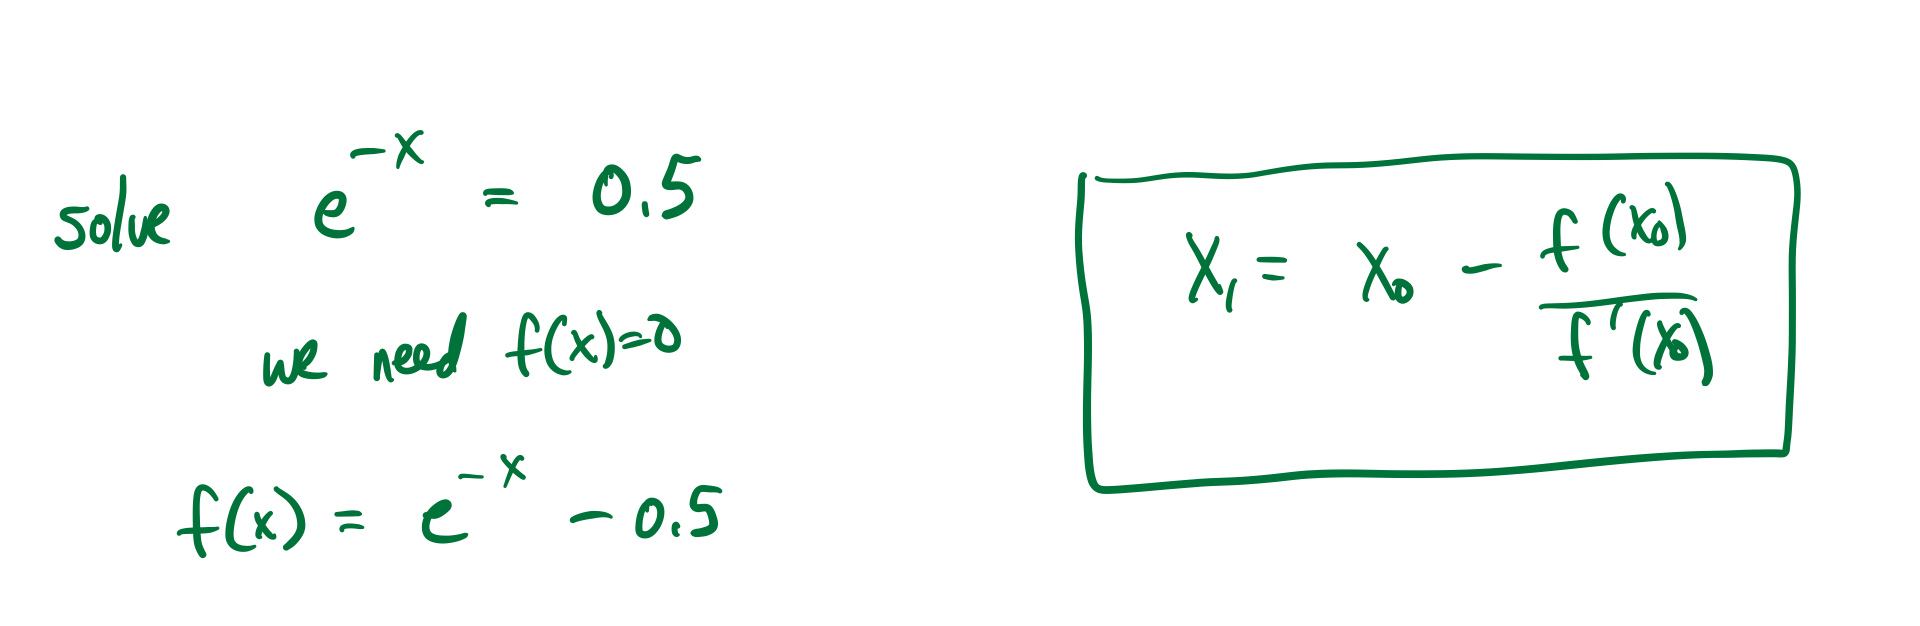 solve e^{-x} = 0.5
we need f(x)=0
f(x) = e^{-x} - 0.5
x_1 = x_0 - \frac{f(x_0)}{f'(x_0)}